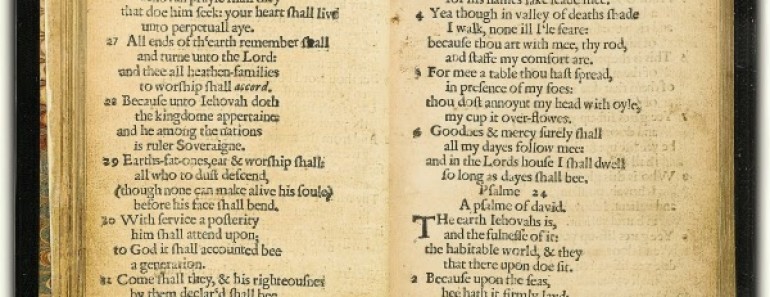 that doe him seek: your heart shall live
unto perpetuall aye.
27 All ends of th'earth remember shall
and turne unto the Lord:
and thee all heathen-families
to worship shall accord.
28 Because unto Iehovah doth
the kingdome appertaine:
and he among the nations
is ruler Soveraigne.
29 Earths-fat-ones, eat & worship shall:
all who to dust descend,
(though none can make alive his soule)
before his face shall bend.
30 With service a posterity
him shall attend upon;
to God it shall accounted bee
a generation.
31 Come shall they, & his righteousnes
by them declar'd shall bee,
4 Yea though in valley of deaths shade
I walk, none ill I'le feare:
because thou art with mee, thy rod,
and staffe my comfort are.
5 For mee a table thou hast spread,
in presence of my foes:
thou dost annoynt my head with oyle,
my cup it over-flowes.
6 Goodnes & mercy surely shall
all my dayes follow mee:
and in the Lords house I shall dwell
so long as dayes shall bee.
Psalme 24
A psalme of david.
THe earth Iehovahs is,
and the fulnesse of it:
the habitable world, & they
that there upon doe sit.
2 Because upon the seas,
hee hath it firmly layd: